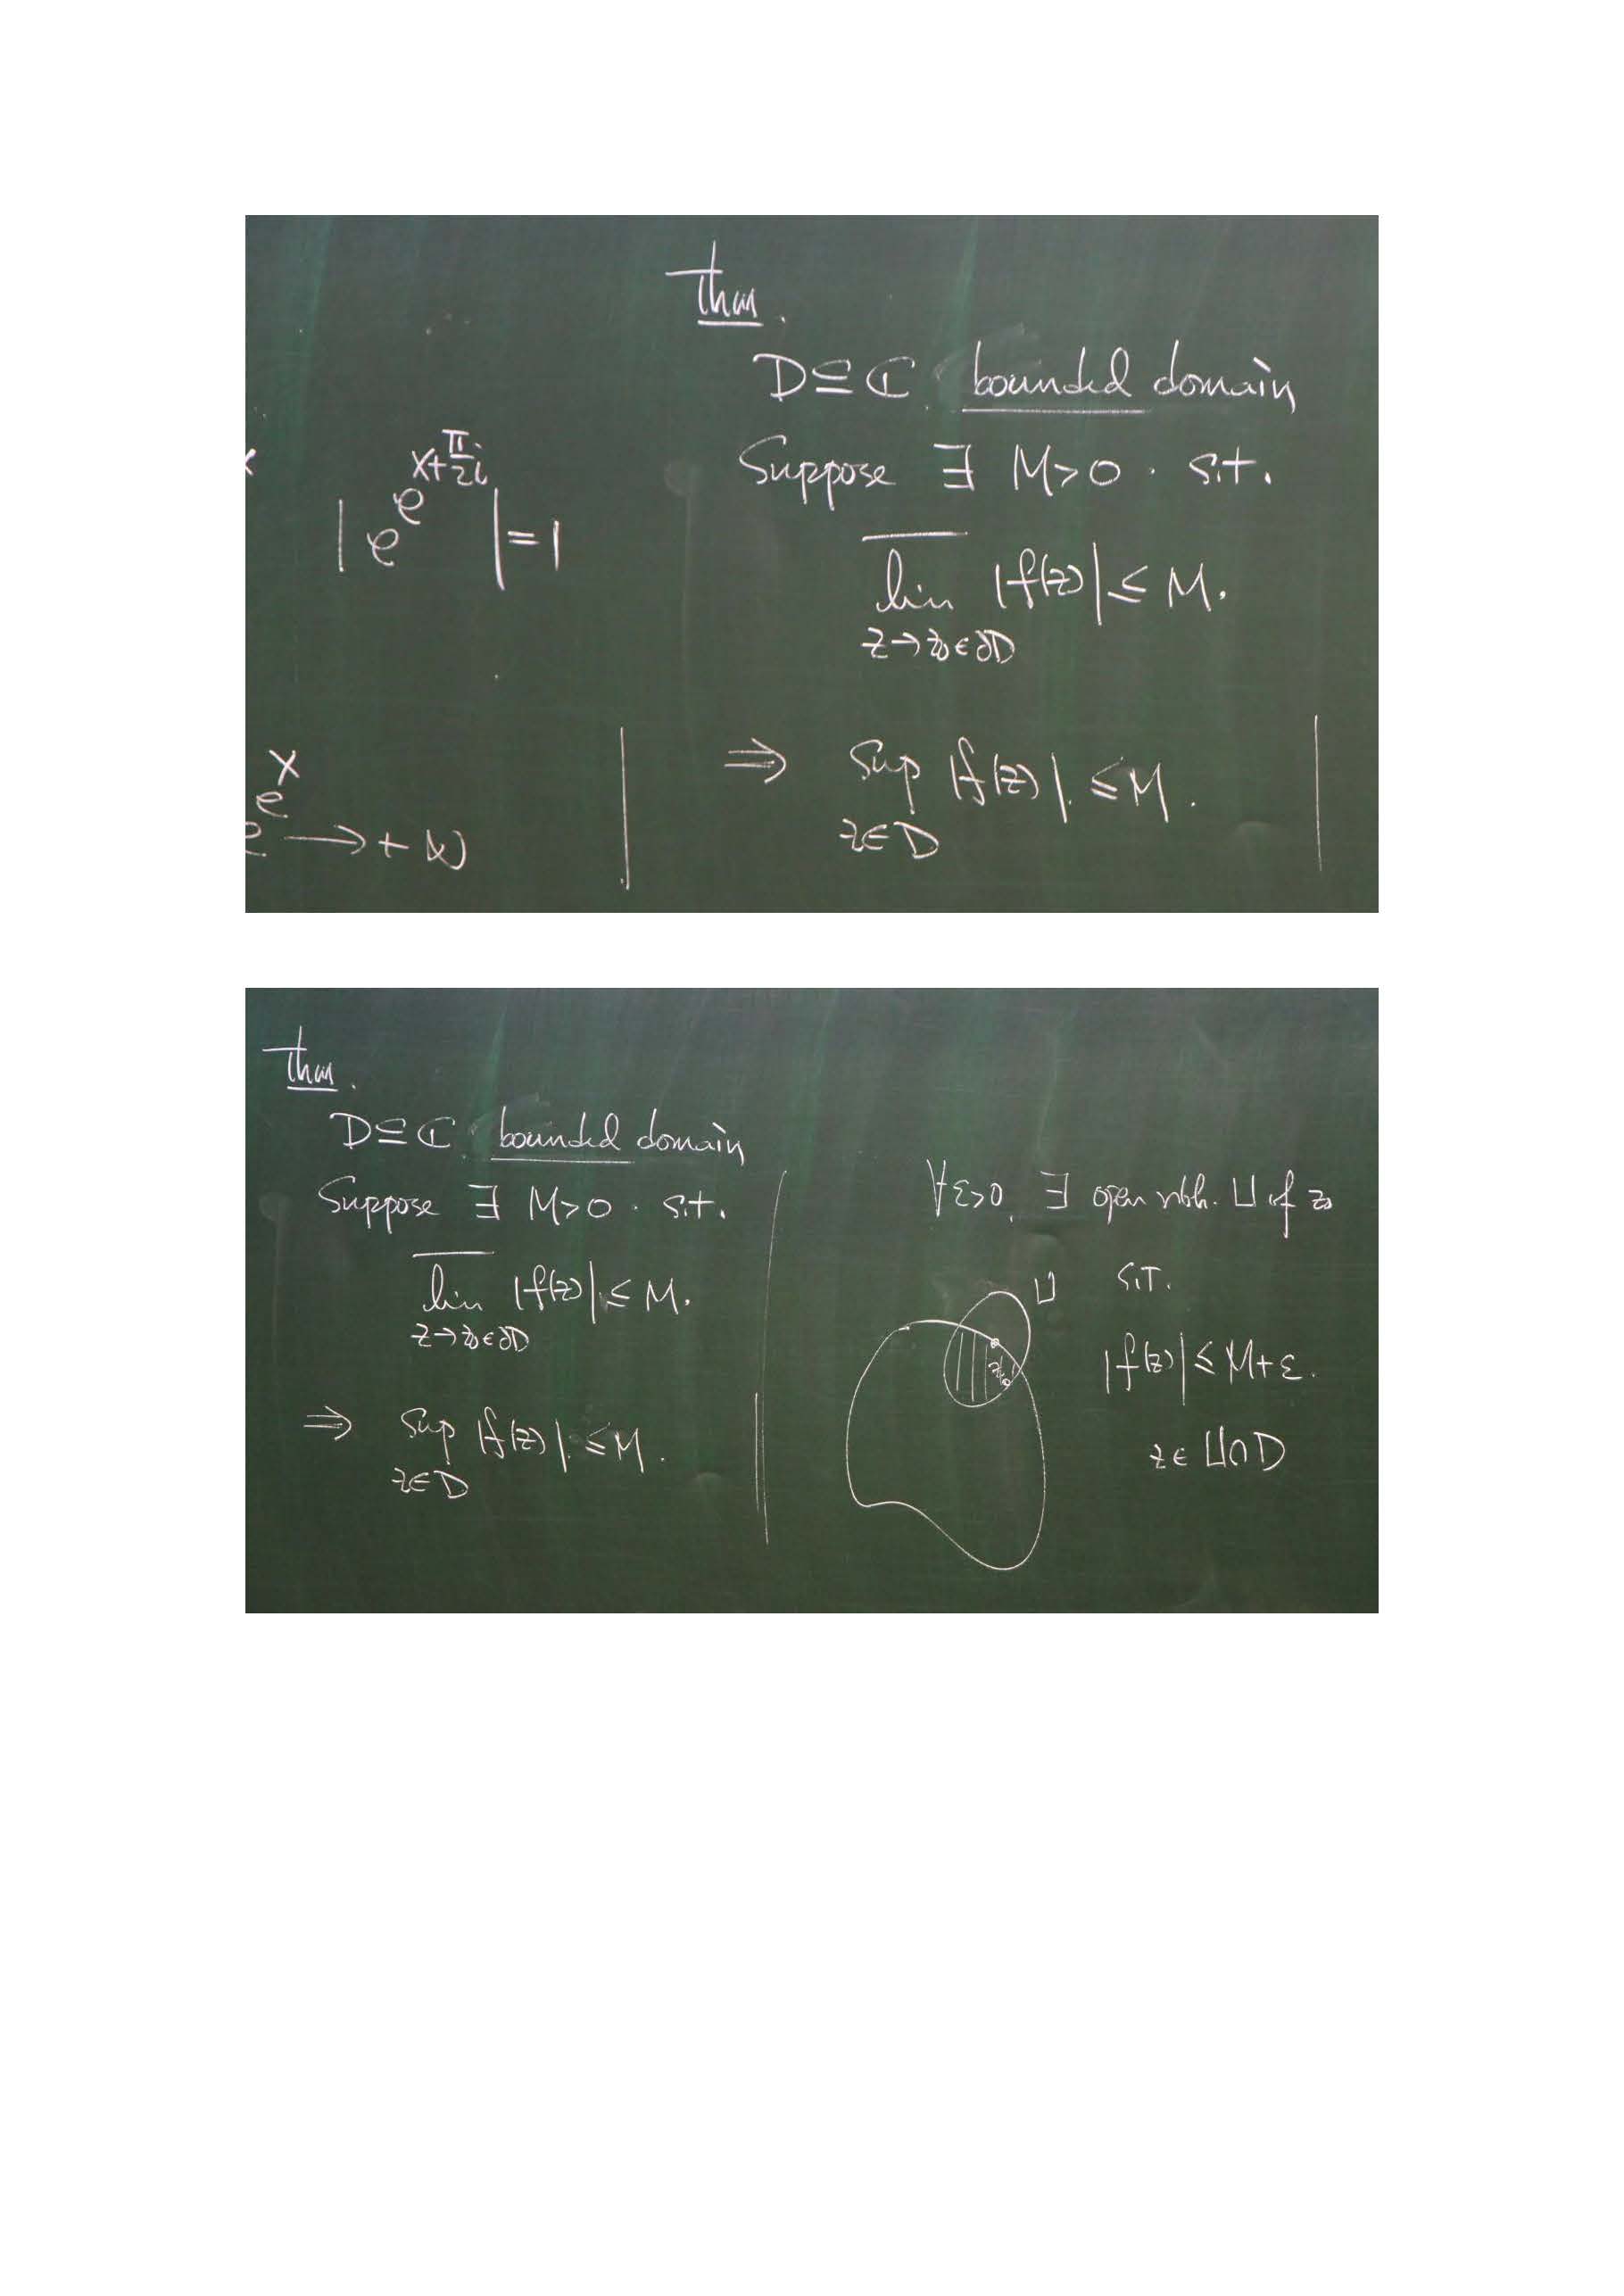 |e^{e^{x+\frac{π}{2}i}}| = 1
e^{e^x} → +∞
Thm.
D ⊆ ℂ bounded domain
Suppose ∃ M>0 . s.t.
\overline{lim}_{z→z₀∈∂D} |f(z)| ≤ M.
⇒ sup_{z∈D} |f(z)| ≤ M.
Thm.
D ⊆ ℂ bounded domain
Suppose ∃ M>0 . s.t.
\overline{lim}_{z→z₀∈∂D} |f(z)| ≤ M.
⇒ sup_{z∈D} |f(z)| ≤ M.
∀ε>0, ∃ open nbh. U of z₀
s.t.
U
z₀
|f(z)| ≤ M+ε.
z ∈ U∩D